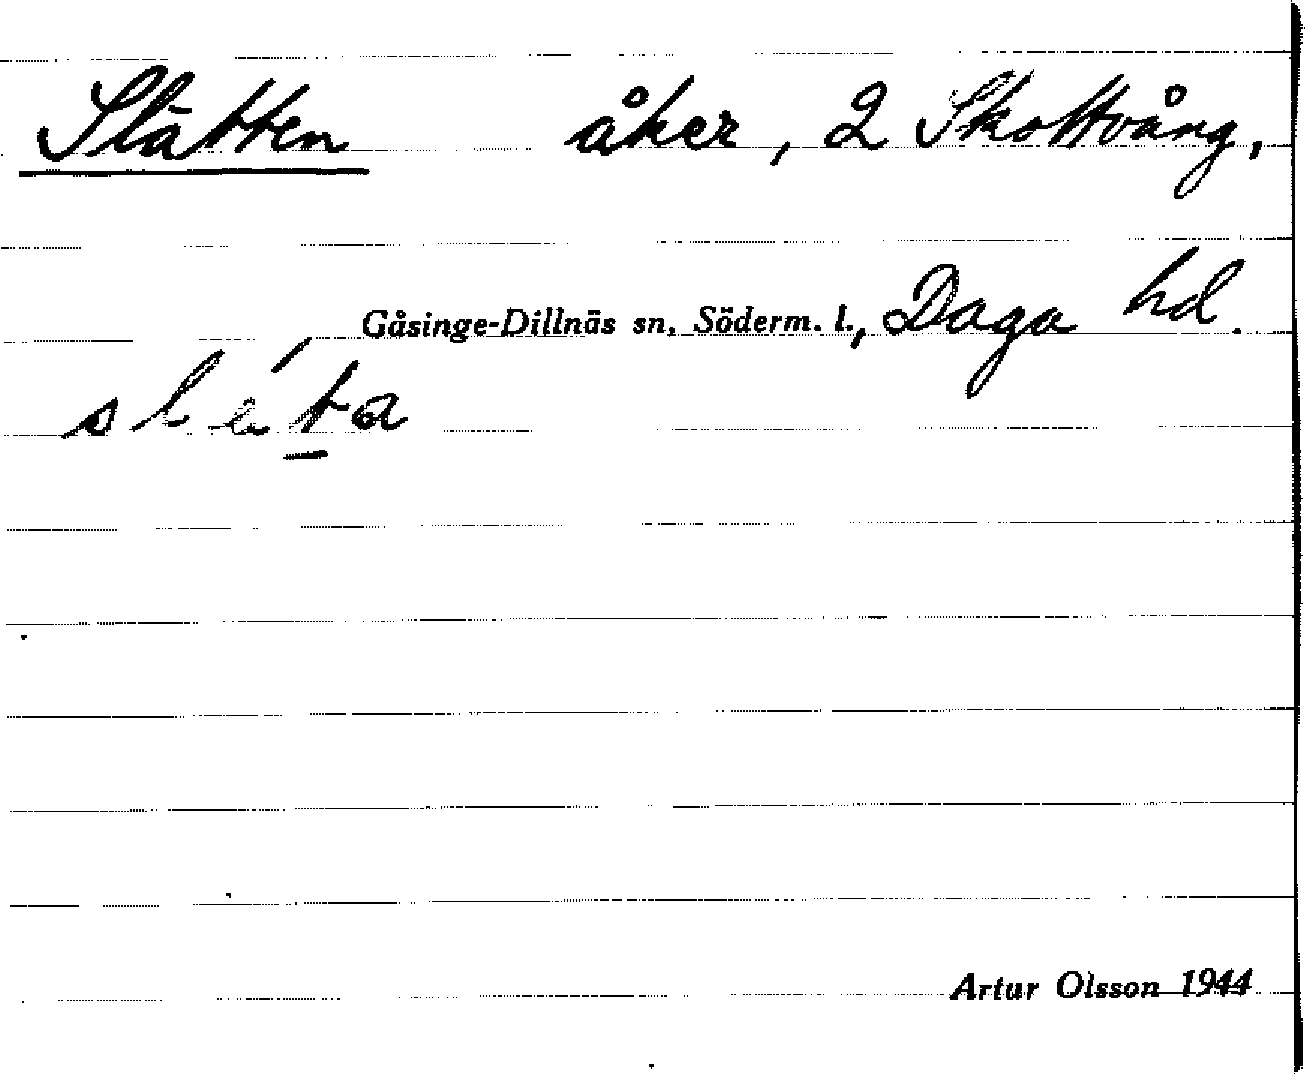 Slätten åker, 2 Skottvång,
Gåsinge-Dillnäs sn. Söderm. l., Daga hd.
Artur Olsson 1944